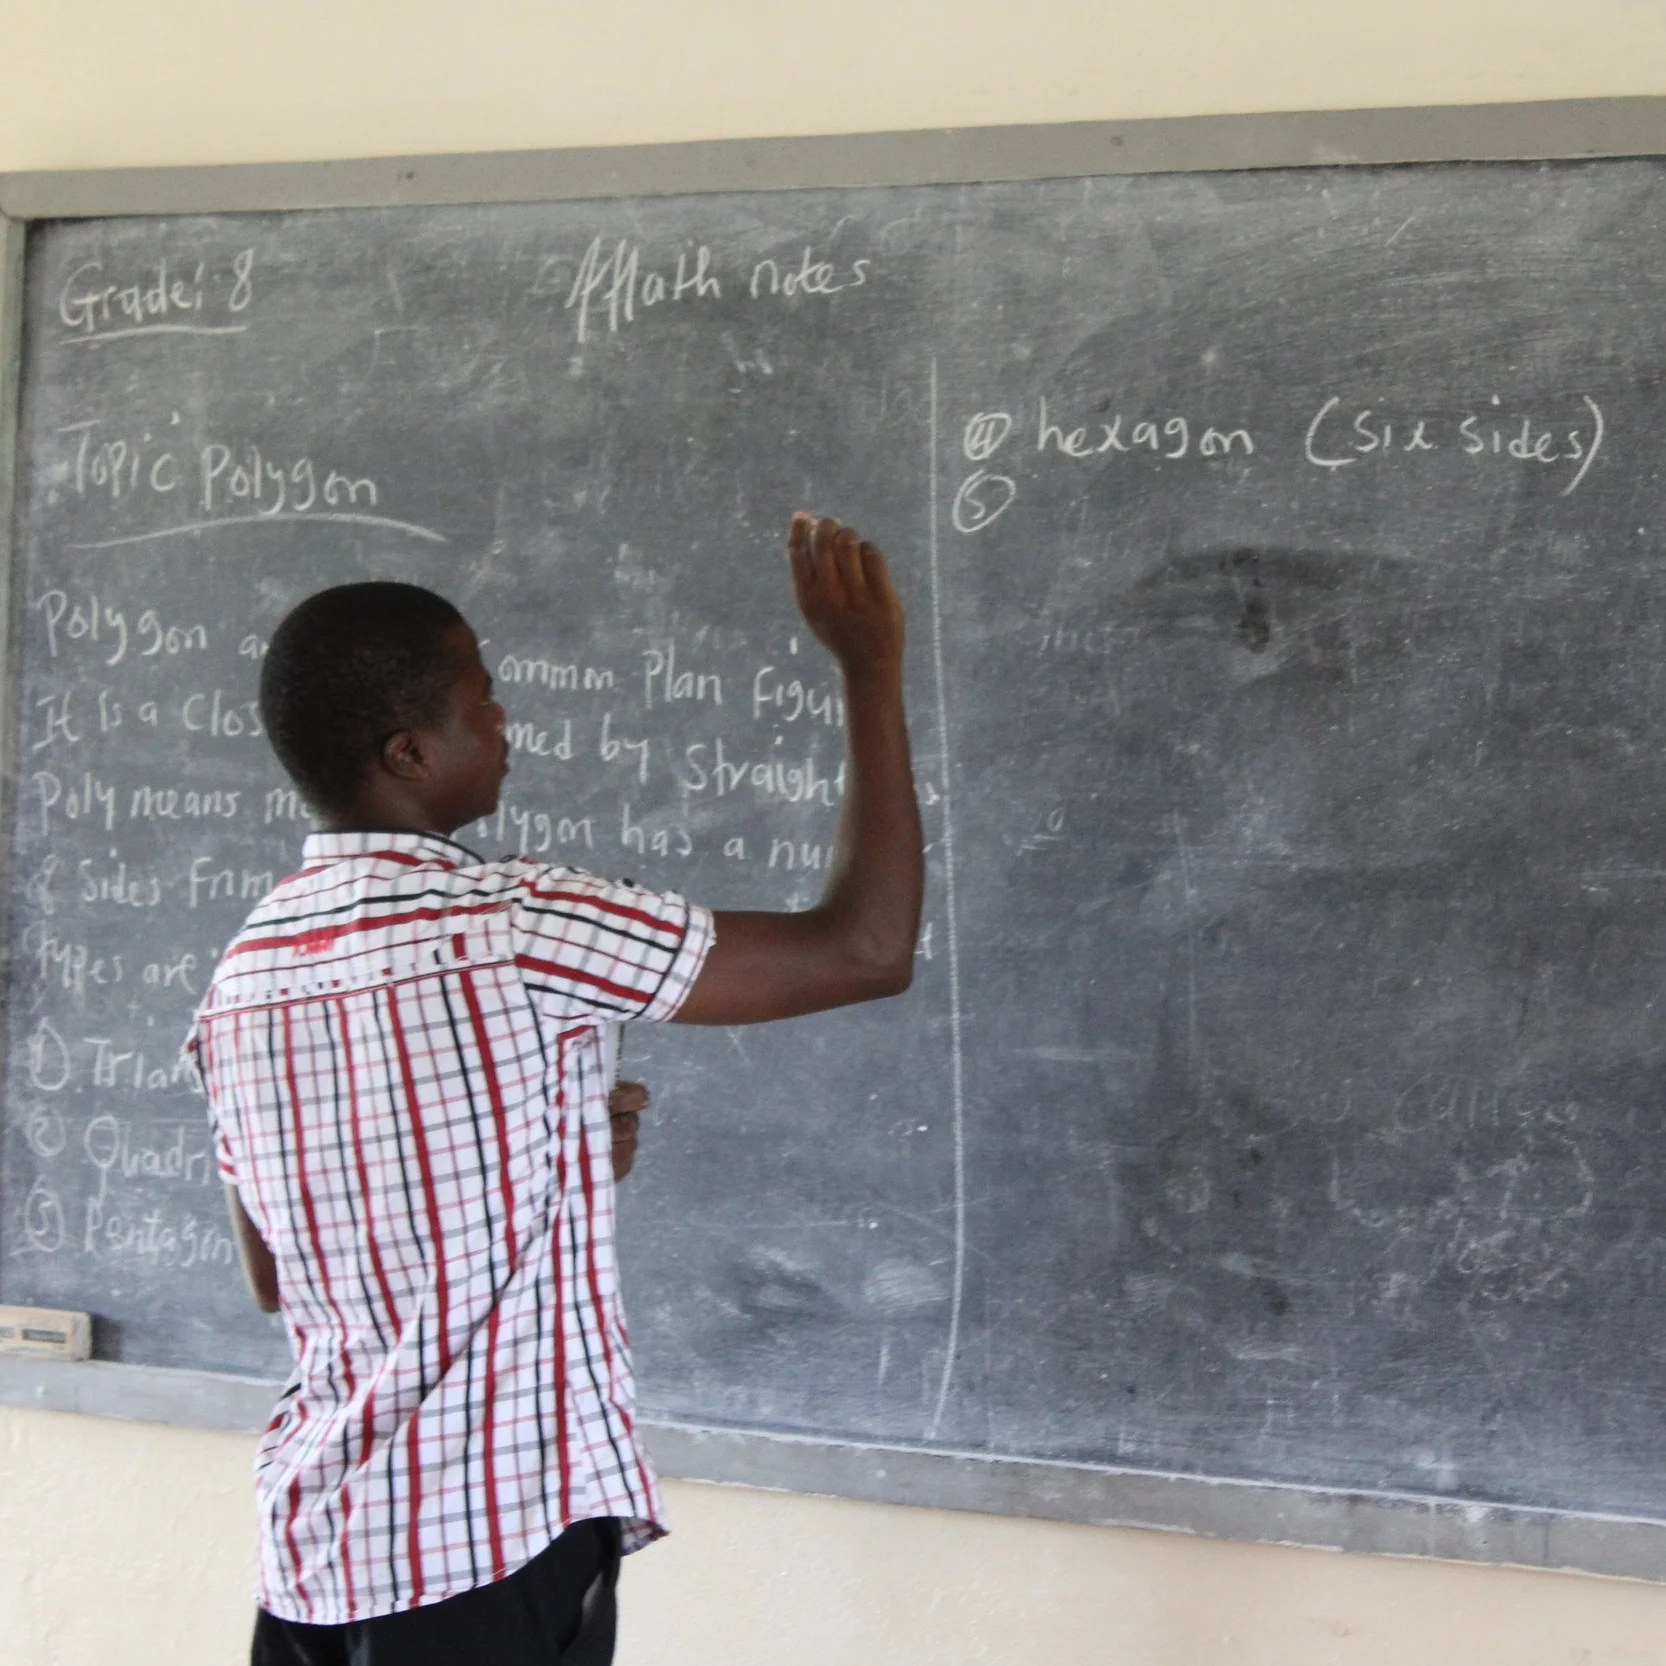 Grade: 8
Math notes
Topic Polygon
Polygon ommon Plan Figu
It is a Clos med by Straight
Poly means m olygon has a nu
8 Sides From
types are
① Trian
② Quadri
③ Pentagon
④ hexagon (Six Sides)
⑤